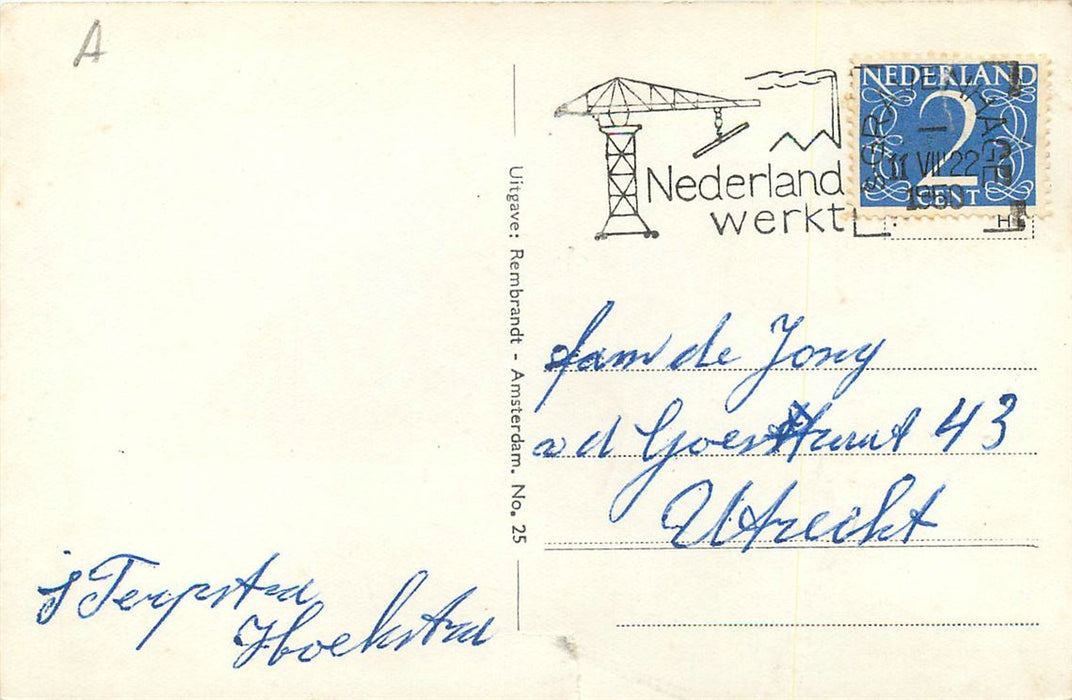 A
Nederland
werkt
NEDERLAND
2
CENT
'S GRAVENHAGE
11 VII 22
1950
H
Uitgave: Rembrandt - Amsterdam. No. 25
fam de Jong
v d Goesstraat 43
Utrecht
J Terpstra
Hoekstra